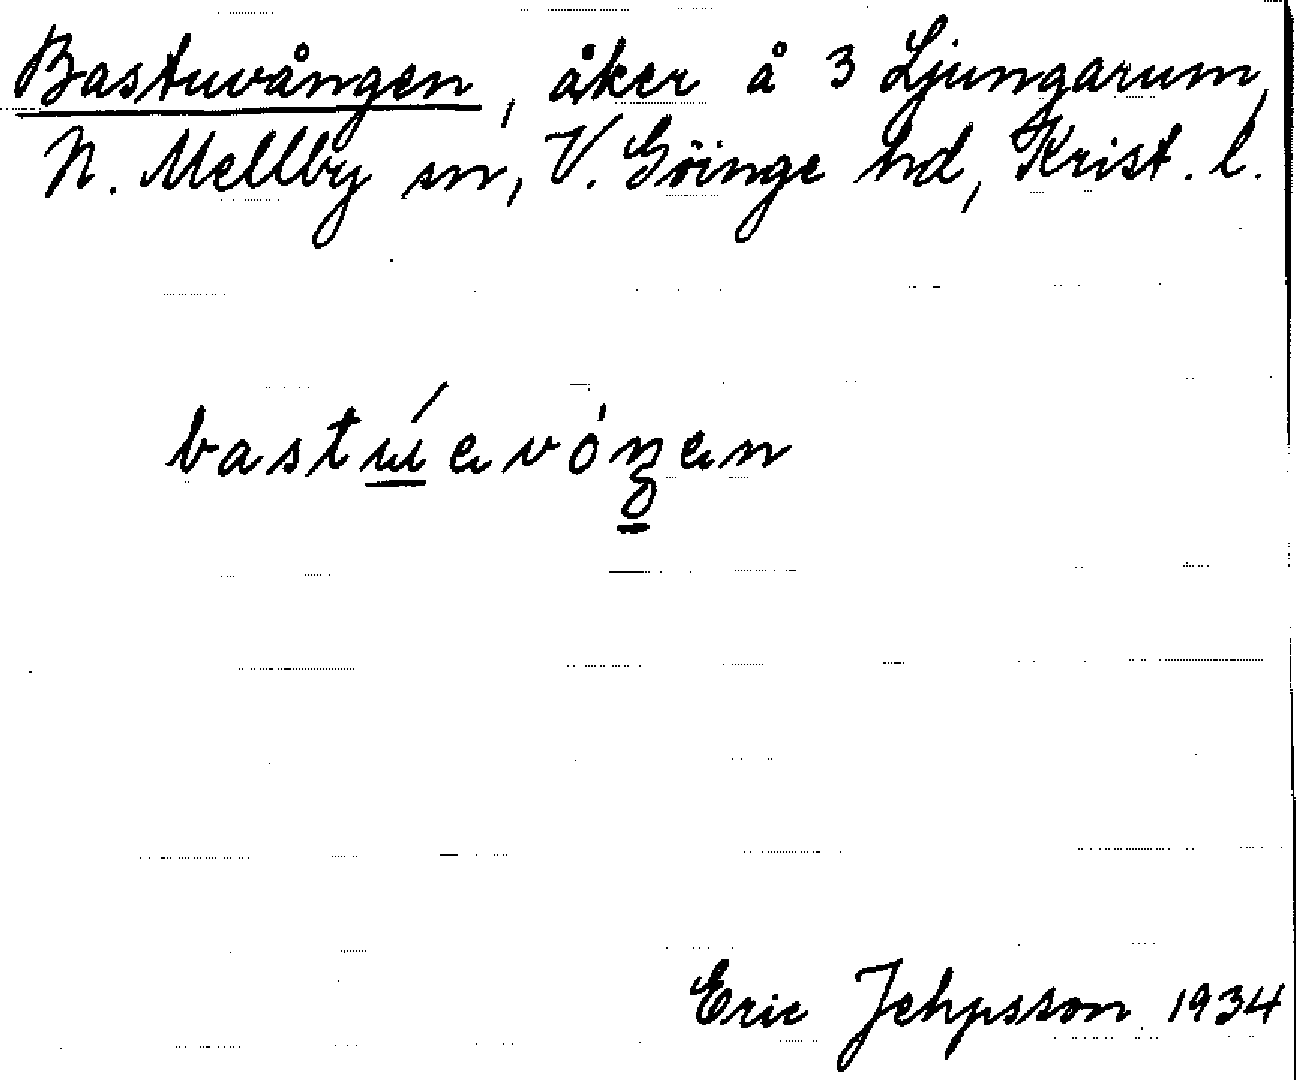 Bastuvången, åker å 3 Ljungarum,
N. Mellby sn, V. Göinge hd, Krist. l.
bastúevóŋen
Eric Jehpsson 1934